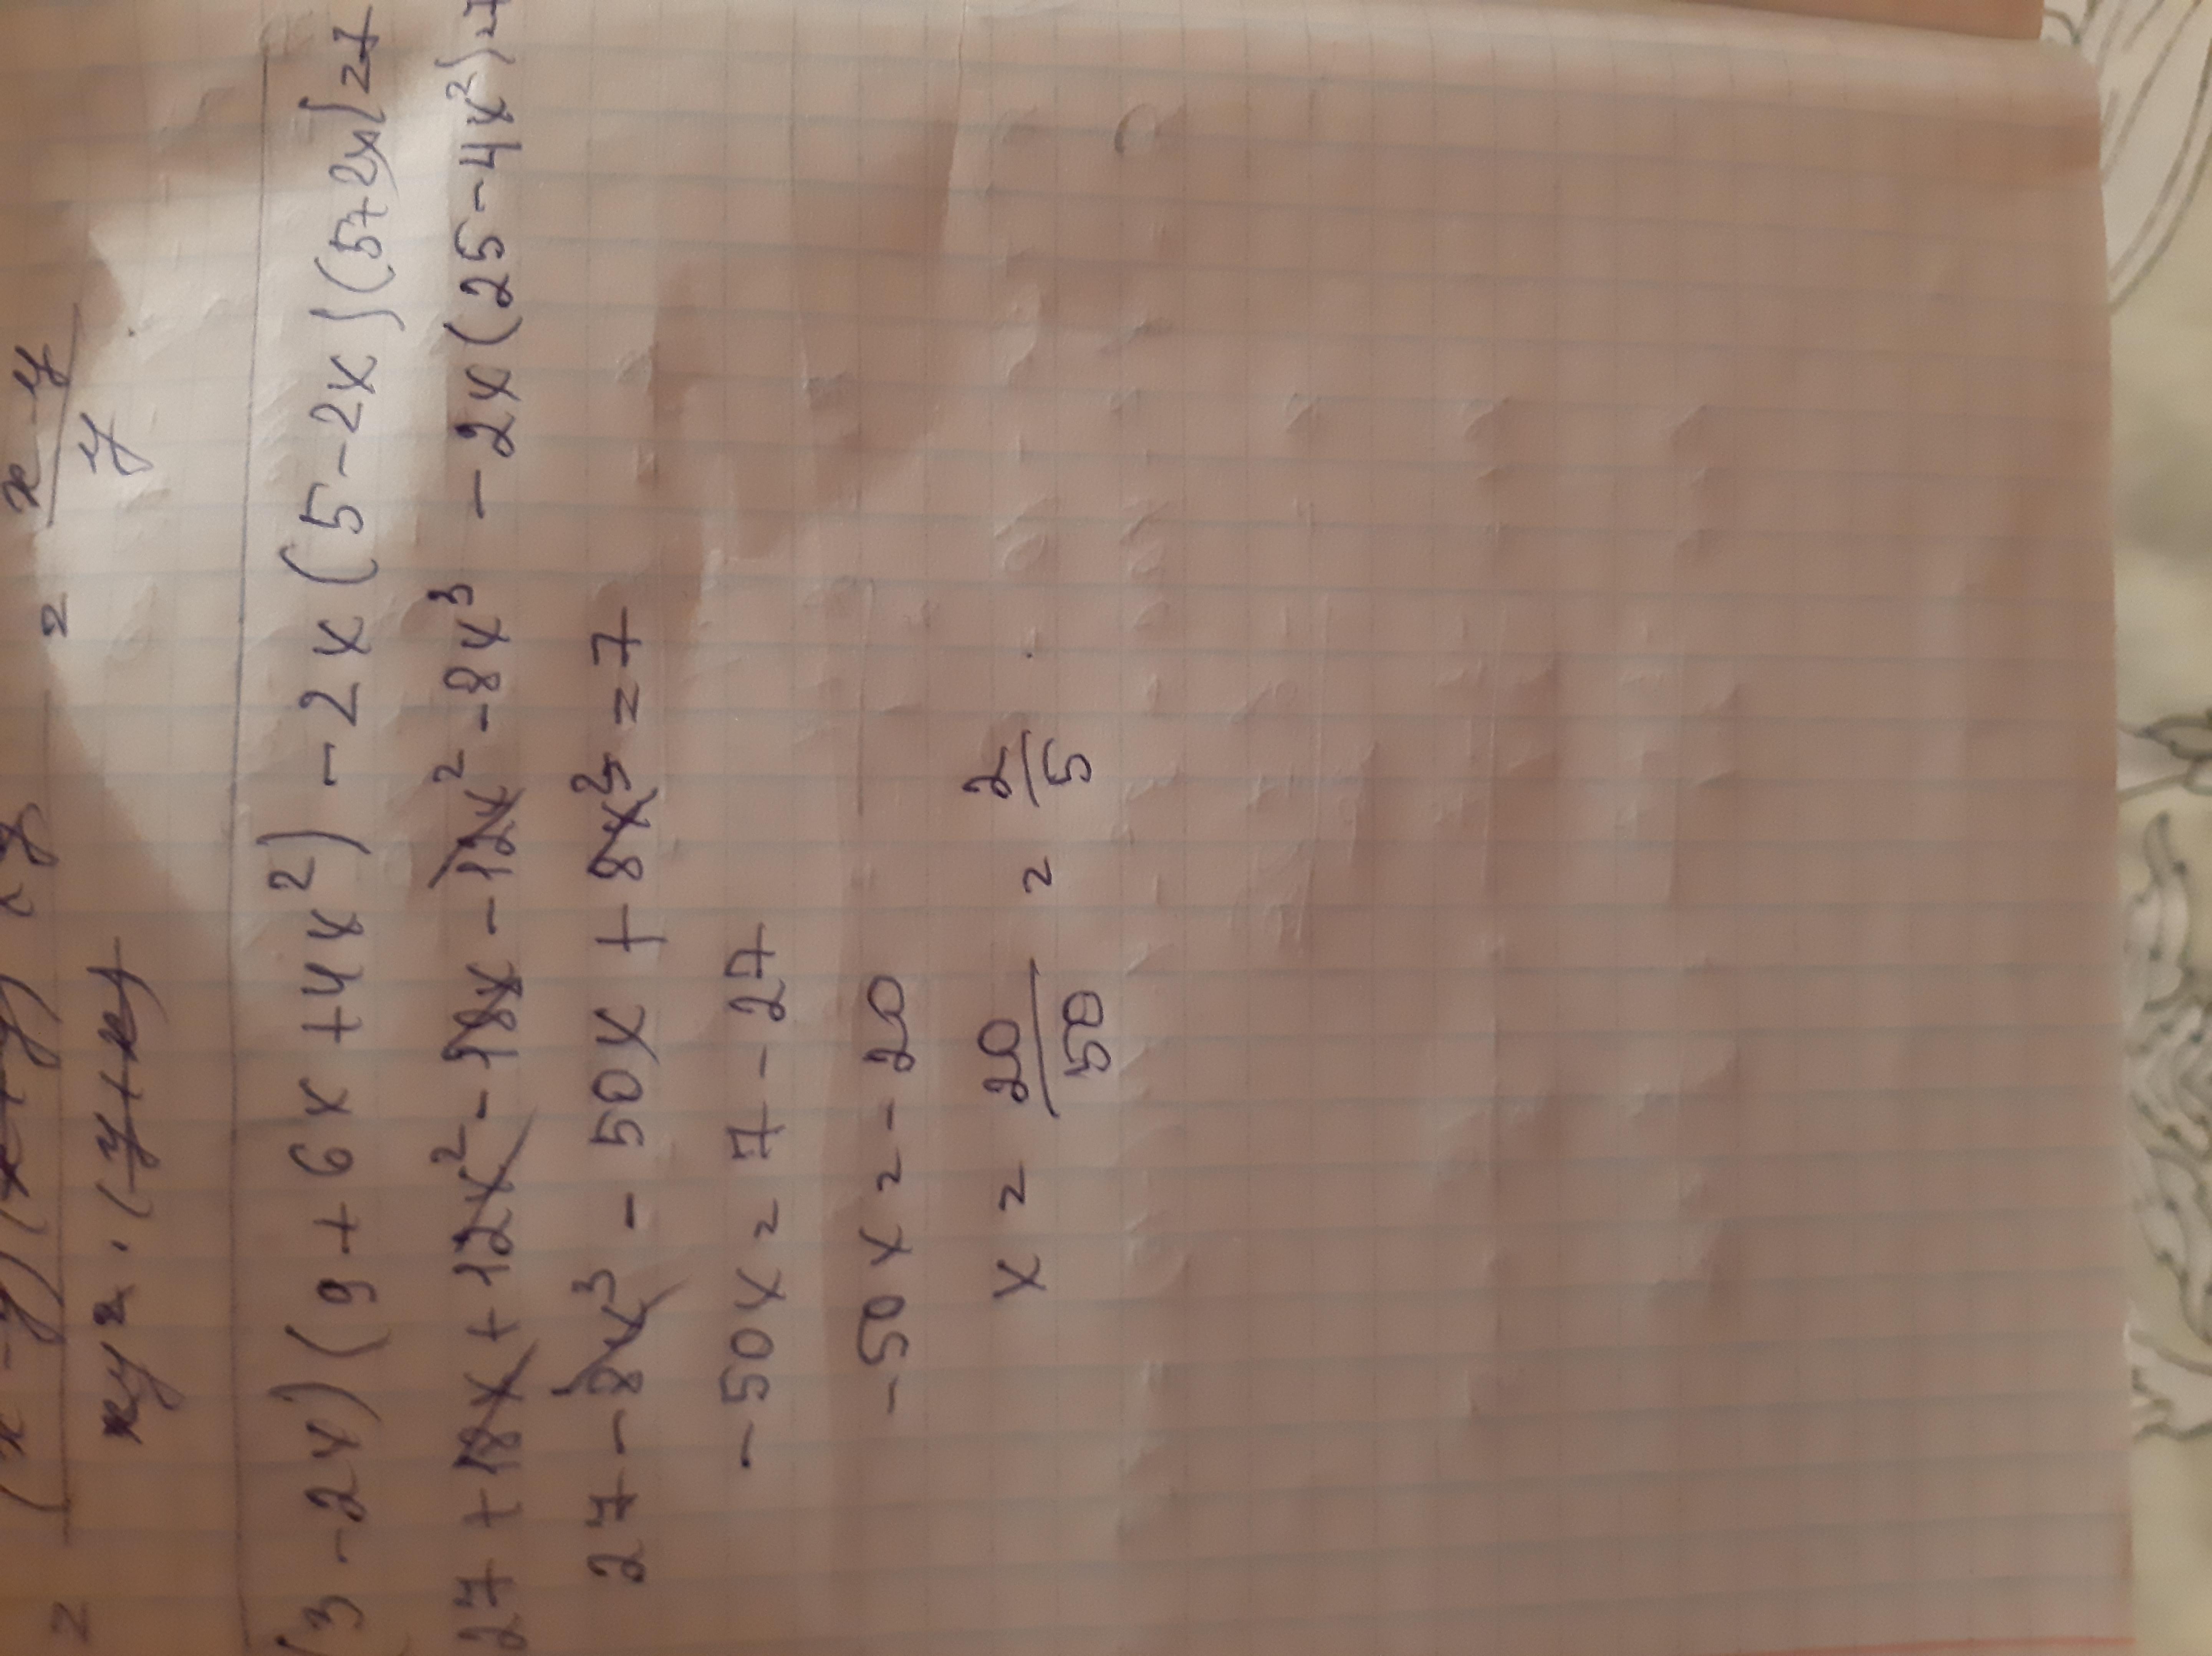 = (x-y)(x+y) xy = x-y
xy · (y+x) y
(3-2x)(9+6x+4x²)-2x(5-2x)(5+2x)=7
27+18x+12x²-18x-12x²-8x³-2x(25-4x²)=7
27-8x³-50x+8x³=7
-50x=7-27
-50x=-20
x=20/50=2/5